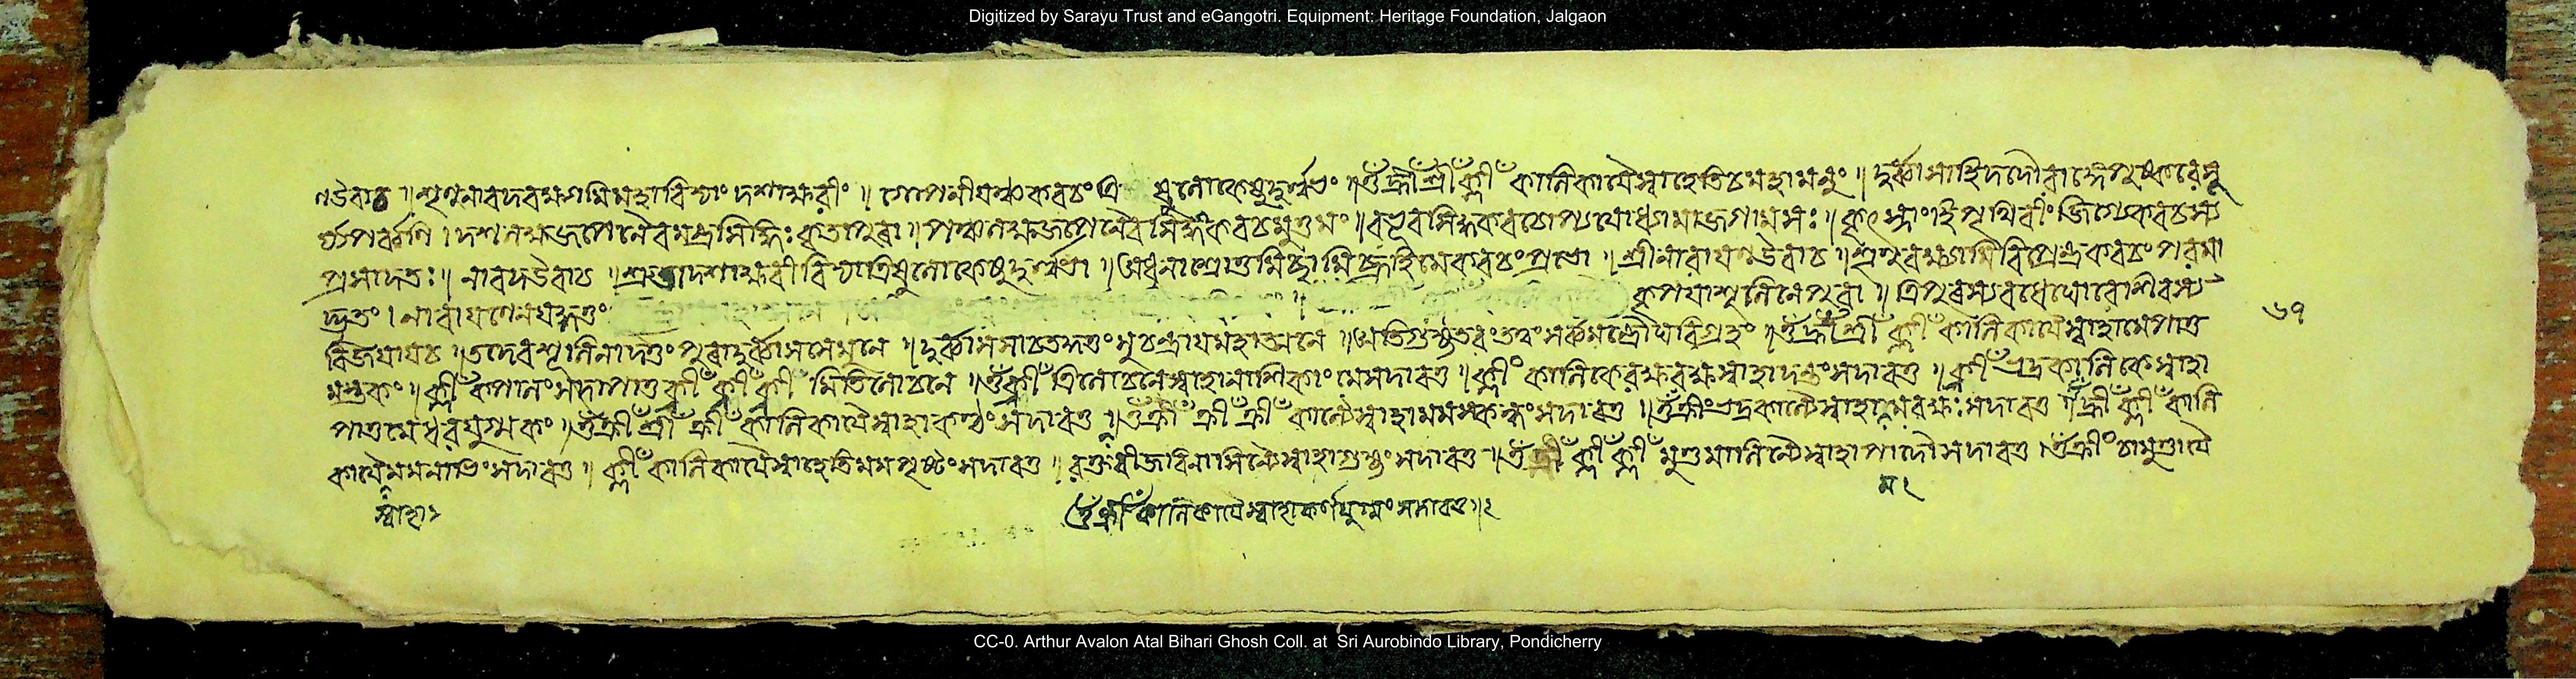 Digitized by Sarayu Trust and eGangotri. Equipment: Heritage Foundation, Jalgaon
ণ উবাচ ॥ শৃণু নারদ বক্ষ্যামি মহাবিদ্যাং দশাক্ষরীং ॥ গোপনীয়ঞ্চ কবচং ত্রিষু লোকেষু দুর্ল্লভং ॥ ওঁ হ্রীঁ শ্রীঁ ক্লীঁ কালিকায়ৈ স্বাহেতি চ মহামনুং ॥ দুর্ব্বাসা হি দদৌ রাজ্ঞে পুষ্করে সূ
র্য্যপর্ব্বণি । দশলক্ষজপেনৈব মন্ত্রসিদ্ধিঃ কৃতা পুরা ॥ পঞ্চলক্ষজপেনৈব কবচমুত্তমং ॥ বভূব সিদ্ধকবচো জগাম সঃ ॥ কৃৎস্নাং হি পৃথিবীং জিগ্যে কবচস্য
প্রসাদতঃ ॥ নারদ উবাচ ॥ শ্রুতা দশাক্ষরী বিদ্যা ত্রিষু লোকেষু দুর্ল্লভা ॥ অধুনা শ্রোতুমিচ্ছামি কবচং ॥ শ্রীনারায়ণ উবাচ ॥ শৃণু বক্ষ্যামি বিপ্রেন্দ্র কবচং পরমা
দ্ভুতং । নারায়ণেন যদ্দত্তং কৃপয়া শূলিনে পুরা ॥ ত্রিপুরস্য বধে ঘোরে শিবস্য
বিজয়ায় চ ॥ তদেব শূলিনা দত্তং পুরা দুর্ব্বাসসে মুনে ॥ দুর্ব্বাসসা চ তদ্দত্তং সুচন্দ্রায় মহাত্মনে ॥ অতিগুহ্যতরং তত্ত্বং সর্ব্বমন্ত্রৌঘবিগ্রহং ॥ ওঁ হ্রীঁ শ্রীঁ ক্লীঁ কালিকায়ৈ স্বাহা মে পাতু
মস্তকং ॥ ক্লীঁ কপালং সদা পাতু ক্লীঁ ক্লীঁ ক্লীঁ মিতি লোচনে ॥ ওঁ হ্রীঁ ত্রিলোচনে স্বাহা নাসিকাং মে সদাবতু ॥ ক্লীঁ কালিকে রক্ষ রক্ষ স্বাহা দন্তং সদাবতু ॥ ক্লীঁ ভদ্রকালিকে স্বাহা
পাতু মেঽধরযুগ্মকং ॥ ওঁ হ্রীঁ শ্রীঁ ক্লীঁ কালিকায়ৈ স্বাহা কণ্ঠং সদাবতু ॥ ওঁ ক্রীঁ ক্রীঁ ক্রীঁ কাল্যৈ স্বাহা মম স্কন্ধং সদাবতু ॥ ওঁ ক্রীং ভদ্রকাল্যৈ স্বাহা মম বক্ষঃ সদাবতু ॥ ক্রীঁ ক্লীঁ কালি
কায়ৈ মম নাভিং সদাবতু ॥ ক্লীঁ কালিকায়ৈ স্বাহেতি মম পৃষ্ঠং সদাবতু ॥ রক্তবীজবিনাশিন্যৈ স্বাহা গুহ্যং সদাবতু ॥ ওঁ ক্লীঁ ক্লীঁ মুণ্ডমালিন্যৈ স্বাহা পাদৌ সদাবতু ॥ ওঁ ক্রীঁ চামুণ্ডায়ৈ
৬৭
স্বাহা
ওঁ হ্রীঁ কালিকায়ৈ স্বাহা কর্ণযুগ্মং সদাবতু ॥ ২
CC-0. Arthur Avalon Atal Bihari Ghosh Coll. at Sri Aurobindo Library, Pondicherry